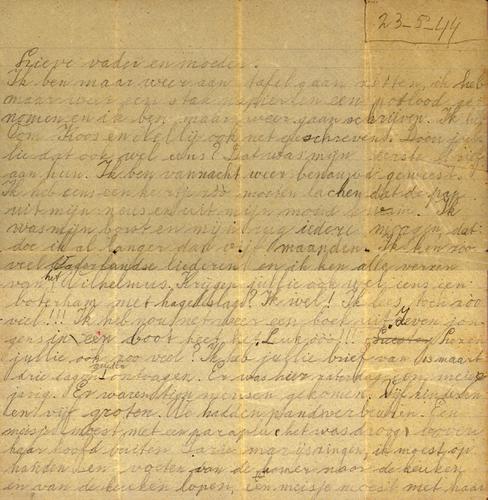 23-5-44
Lieve vader en moeder.
Ik ben maar weer aan tafel gaan zitten, ik heb
maar weer een stuk papier en een potlood ge-
nomen en ik ben maar weer gaan schrijven. Ik heb
Oom Koos en ook net geschreven. Doen jul-
lie dat ook wel eens? Dat was mijn eerste brief
aan hun. Ik ben vannacht weer benauwd geweest.
Ik heb eens een keer zoo moeten lachen dat de pap
uit mijn neus en uit mijn mond kwam. Ik
was mijn borst en mijn rug iedere morgen, dat
doe ik al langer dan vijf maanden. Ik ken zoo
veel Vaderlandse liederen en ik ken alle verzen
van het Wilhelmus. Krijgen jullie ook wel eens een
boterham met hagelslag? Ik wel! Ik lees toch zoo
veel!!! Ik heb nou net weer een boek uit, zeven jon-
gens in een boot heet het. Leuk zoo!!! Lezen
jullie ook zoo veel? Ik heb jullie brief van 13 maart
drie dagen ontvangen. Er was hier zaterdag een meisje
jarig. Er waren tien mensen gekomen. Vijf kinderen
en vijf groten. We hadden pandverbeuren. Een
meisje moest met een paraplu (het was droog) boven
haar hoofd buiten ik moest op
handen en voeten van de kamer naar de keuken
en van de keuken lopen, een meisje moest met haar